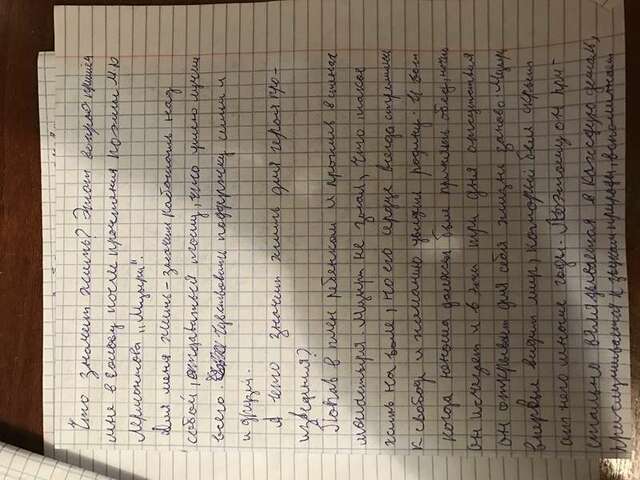 Что значит жить? Этот вопрос пришел
мне в голову после прочтения поэмы М.Ю
Лермонтова „Мцыри".
Для меня жить - значит работать над
собой, отдаваться тому, что умею лучше
всего. Чувствовать поддержку семьи и
и друзей.
А что значит жить для героя про-
изведения?
Попав в плен ребенком и прожив в стенах
монастыря. Мцыри не знал, что такое
жить на воле, но его сердце всегда стремилось
к свободе и желанию увидеть родину. И вот
когда юноша должен был принять обед, ночью
он исчезает и в эти три дня отсутствия
он открывает для себя жизнь заново. Мцыри
впервые видит мир, который был скрыт
от него многие годы. Поэтому он при-
стально вглядывается в каждую деталь,
прислушивается к звукам природы, вспоминает